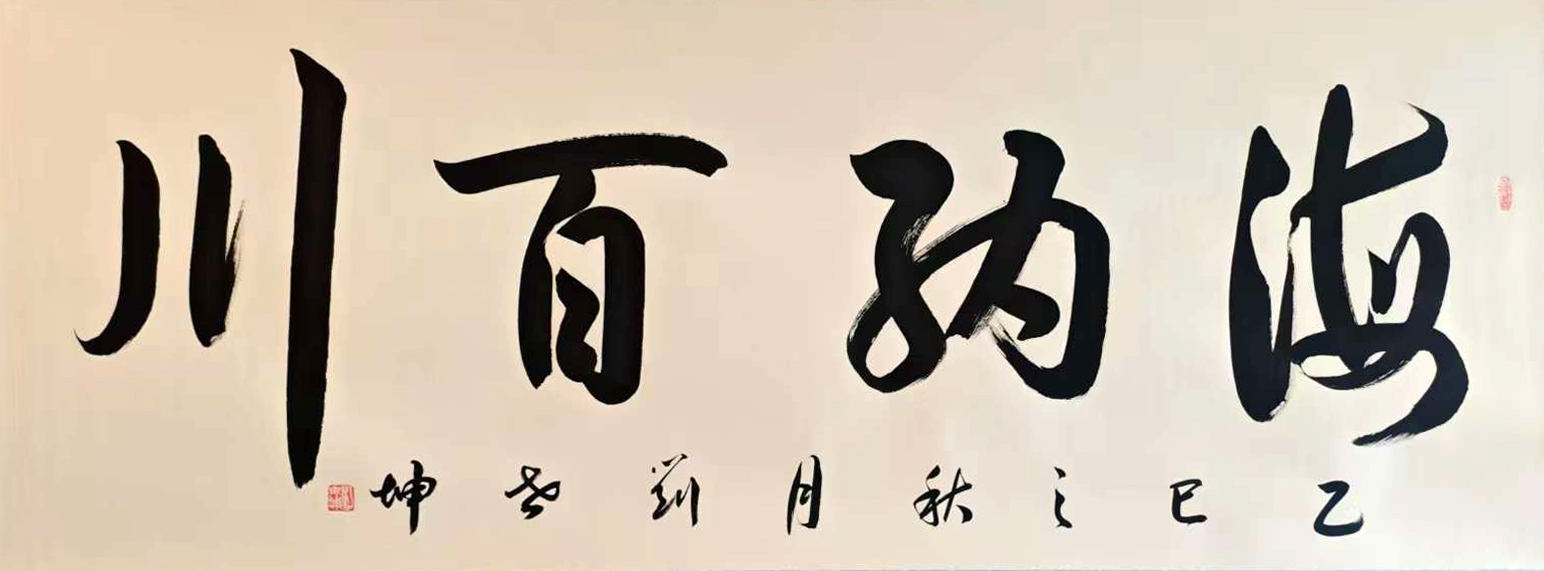 海纳百川
乙巳之秋月刘老坤